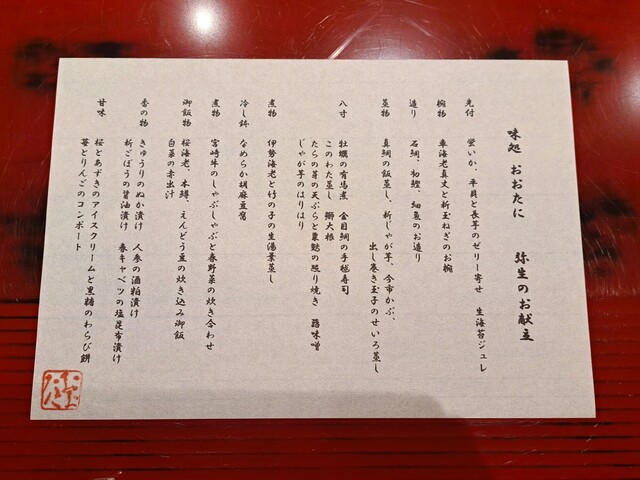 味処 おおたに 弥生のお献立
先付 蛍いか、平貝と長芋のゼリー寄せ 生海苔ジュレ
椀物 車海老真丈と新玉ねぎのお椀
造り 石鯛、初鰹、細魚のお造り
蒸物 真鯛の飯蒸し、新じゃが芋、今市かぶ、
出し巻き玉子のせいろ蒸し
八寸 牡蠣の有馬煮 金目鯛の手毬寿司
このわた蒸し 鰤大根
たらの芽の天ぷらと粟麩の照り焼き 蕗味噌
じゃが芋のはりはり
煮物 伊勢海老と竹の子の生湯葉蒸し
冷し鉢 なめらか胡麻豆腐
煮物 宮崎牛のしゃぶしゃぶと春野菜の炊き合わせ
御飯物 桜海老、本鱒、えんどう豆の炊き込み御飯
白菜の赤出汁
香の物 きゅうりのぬか漬け 人参の酒粕漬け
新ごぼうの醤油漬け 春キャベツの塩昆布漬け
甘味 桜とあずきのアイスクリームと黒糖のわらび餅
苺とりんごのコンポート